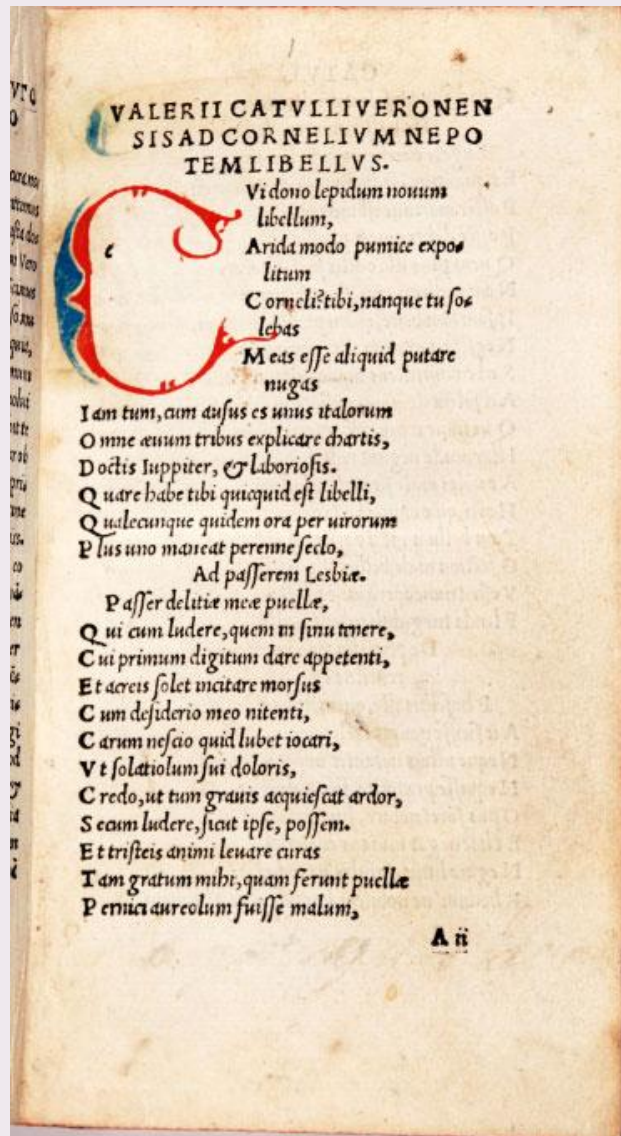 VALERII CATVLLI VERONEN
SIS AD CORNELIVM NEPO
TEM LIBELLVS.
CVi dono lepidum nouum
libellum,
Arida modo pumice expo-
litum
Corneli? tibi, nanque tu so-
lebas
Meas esse aliquid putare
nugas
Iam tum, cum ausus es unus italorum
Omne æuum tribus explicare chartis,
Doctis Iuppiter, & laboriosis.
Quare habe tibi quicquid est libelli,
Qualecunque quidem ora per uirorum
Plus uno maneat perenne seclo,
Ad passerem Lesbiæ.
Passer delitiæ meæ puellæ,
Qui cum ludere, quem in sinu tenere,
Cui primum digitum dare appetenti,
Et acreis solet incitare morsus
Cum desiderio meo nitenti,
Carum nescio quid lubet iocari,
Vt solatiolum sui doloris,
Credo, ut tum grauis acquiescat ardor,
Secum ludere, sicut ipse, possem.
Et tristeis animi leuare curas
Tam gratum mihi, quam ferunt puellæ
Pernici aureolum fuisse malum,
A ii